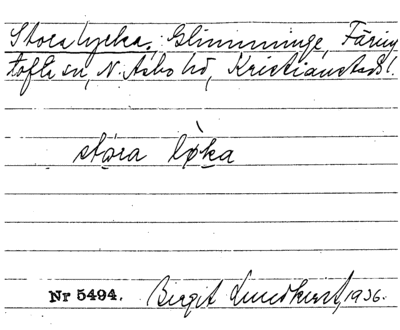 Stora lycka. Glimminge, Färing
tofta sn, N. Åsbo hd, Kristianstads l.
stora lỳka
Nr 5494. Birgit Lundkvist, 1936.